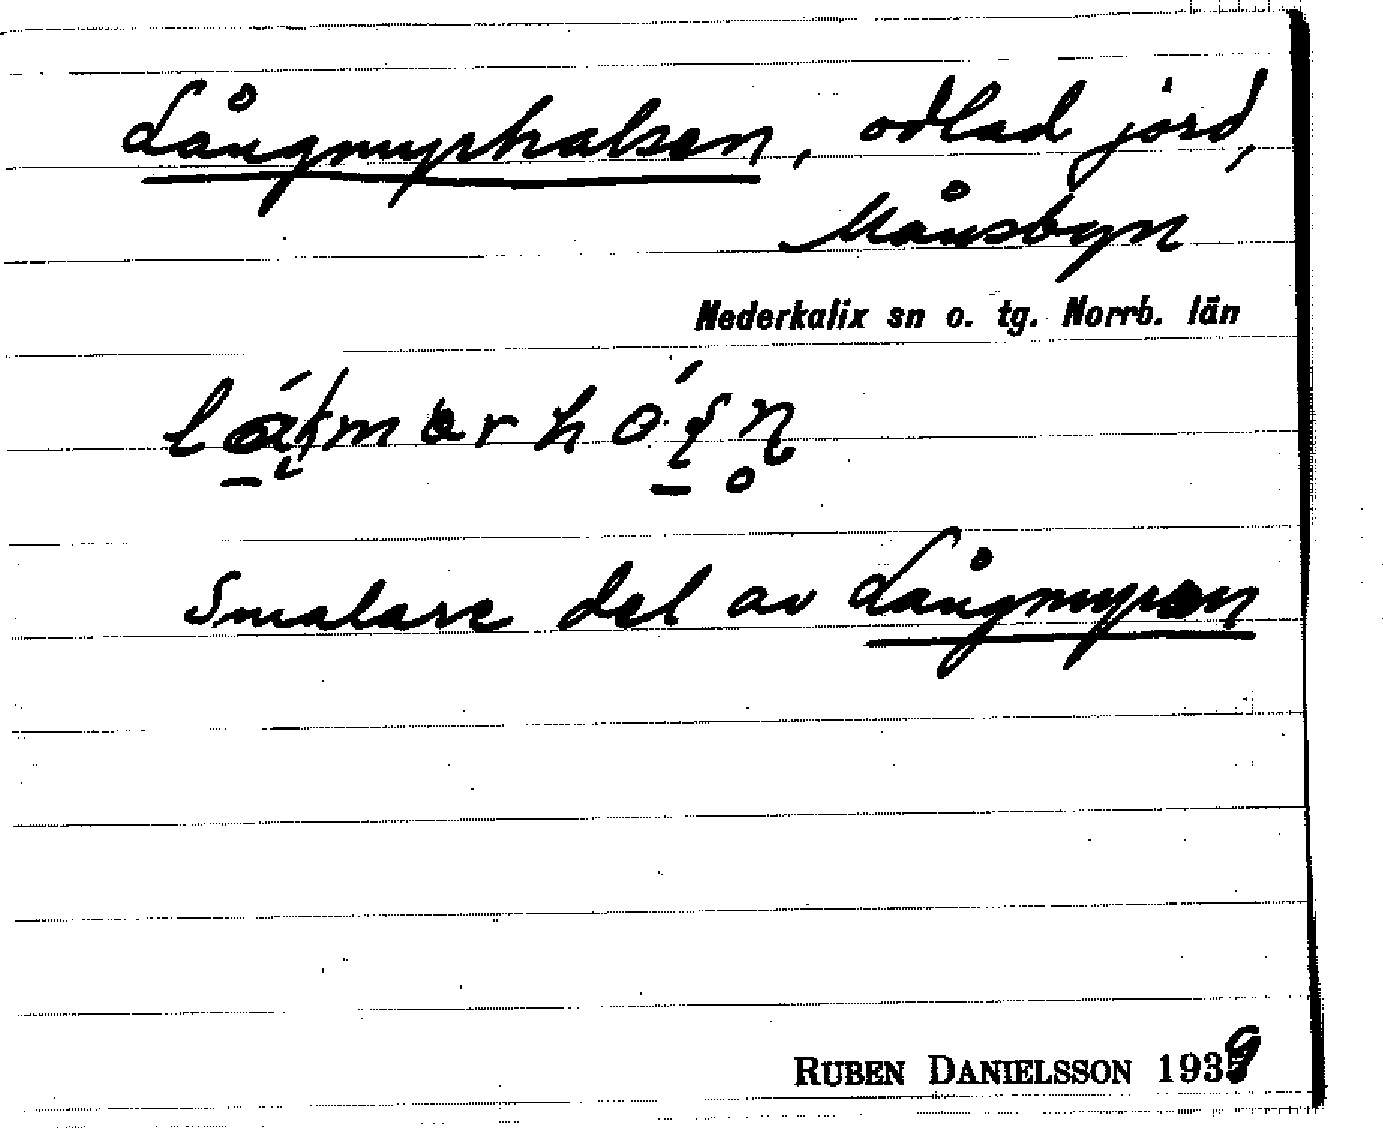 Långmyrhalsen, odlad jord,
Månsbyn
Nederkalix sn o. tg. Norrb. län
Smalare del av Långmyren
RUBEN DANIELSSON 1939